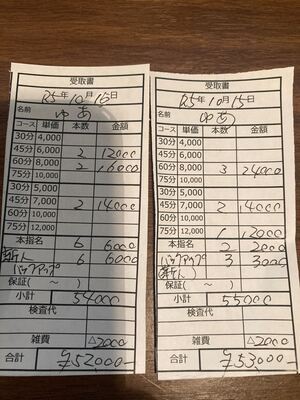 受取書
R5年10月16日
名前 ゆあ
コース 単価 本数 金額
30分 4,000
45分 6,000 2 12000
60分 8,000 2 16000
75分 10,000
30分 5,000
45分 7,000 2 14000
60分 10,000
75分 12,000
本指名 6 6000
新人 6 6000
バックアップ
保証( ～ )
小計 54000
検査代
雑費 △2000
合計 ¥52,000-
受取書
R5年10月15日
名前 ゆあ
コース 単価 本数 金額
30分 4,000
45分 6,000
60分 8,000 3 24000
75分 10,000
30分 5,000
45分 7,000 2 14000
60分 10,000
75分 12,000 1 12000
本指名 2 2000
バックアップ 3 3000
新人
保証( ～ )
小計 55000
検査代
雑費 △2000
合計 ¥53,000-